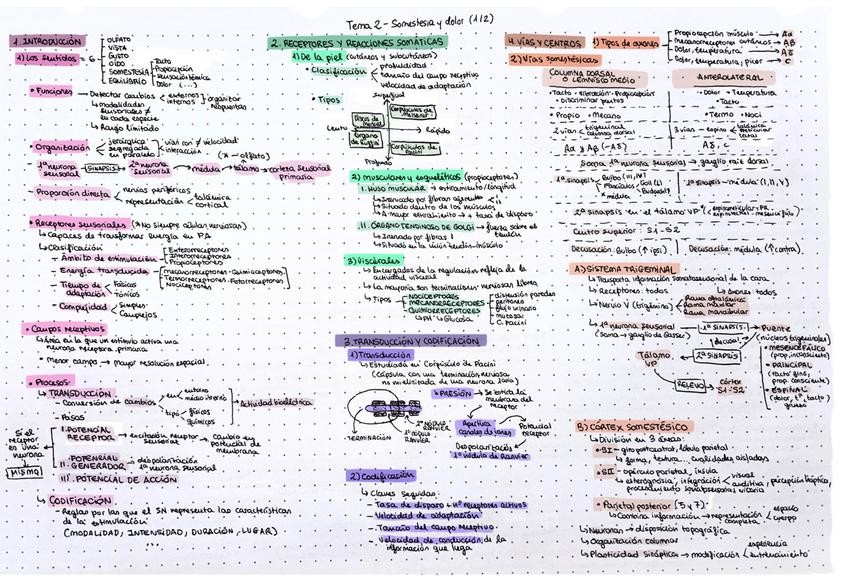 Tema 2 - Somestesia y dolor (1/2)
1. INTRODUCCIÓN
1) Los sentidos = 6
OLFATO
VISTA
GUSTO
OÍDO
SOMESTESIA
EQUILIBRIO
Tacto
Propiocepción
Dolor (...)
• Funciones
Detectar cambios
externos
internos
organizar
respuestas
↳ modalidades
sensoriales ≠
en cada especie
↳ Rango limitado
• Organización
jerárquica
segregada
en paralelo
vías con ≠ velocidad
interacción
(x → olfato)
1ª neurona
sensorial
SINAPSIS
2ª neurona
sensorial
médula
tálamo
corteza sensorial
primaria
• Proporción directa
nervios periféricos
representación
talámica
cortical
• Receptores sensoriales (* No siempre células nerviosas)
↳ Capaces de transformar energía en PA
↳ Clasificación
- Ámbito de estimulación
Exteroreceptores
Interoreceptores
Propioceptores
- Energía transducida
mecanorreceptores - Quimioreceptores
Termorreceptores - Fotorreceptores
Nociceptores
- Tiempo de
adaptación
Fásicos
Tónicos
- Complejidad
Simples
Complejos
• Campos receptivos
↳ Área en la que un estímulo activa una
neurona receptora primaria
• Menor campo → mayor resolución espacial
• Procesos:
↳ TRANSDUCCIÓN
- Conversión de cambios
en
entorno
medio interno
tipo
físicos
químicos
Actividad bioeléctrica
- Pasos
Si el
receptor
es una
neurona
→ MISMO
I. POTENCIAL
RECEPTOR
→ excitación receptor
sensorial
→ cambio en
potencial de
membrana
II. POTENCIAL
GENERADOR
→ despolarización
1ª neurona sensorial
III. POTENCIAL DE ACCIÓN
↳ CODIFICACIÓN
- Reglas por las que el SN representa las características
de la estimulación
(MODALIDAD, INTENSIDAD, DURACIÓN, LUGAR)
...
2. RECEPTORES Y REACCIONES SOMÁTICAS
1) De la piel (cutáneos y subcutáneos)
• Clasificación
profundidad
tamaño del campo receptivo
velocidad de adaptación
• Tipos
Superficial
Discos de
Merkel
Corpúsculos de
Meissner
Lento
Rápido
Órgano
de Ruffini
Corpúsculos de
Pacini
Profundo
2) Musculares y esqueléticos (propioceptores)
I. HUSO MUSCULAR → estiramiento/longitud
↳ Inervado por fibras aferentes
↳ Situado dentro de los músculos
↳ A mayor estiramiento → + tasa de disparo
II. ÓRGANO TENDINOSO DE GOLGI → fuerza sobre el
tendón
↳ Inervado por fibras I
↳ Situado en la unión tendón-músculo
3) Viscerales
↳ Encargados de la regulación refleja de la
actividad visceral
↳ La mayoría son terminaciones nerviosas libres
↳ Tipos
NOCICEPTORES
MECANORRECEPTORES
QUIMIORRECEPTORES
↳ pH ↳ Glucosa
distensión paredes
peritoneo
flujo urinario
mucosa
C. Pacini
3. TRANSDUCCIÓN Y CODIFICACIÓN
1) Transducción
↳ Estudiada en Corpúsculo de Pacini
(cápsula con una terminación nerviosa
no mielinizada de una neurona)
TERMINACIÓN
1º NÓDULO
RANVIER
2º NÓDULO
RANVIER
• PRESIÓN → Se estira la
membrana del
receptor
Apertura
canales de iones
Potencial
receptor
Despolarización
1º nódulo de Ranvier
2) Codificación
↳ Claves seguidas:
- Tasa de disparo - nº receptores activos
- Velocidad de adaptación
- Tamaño del campo receptivo
- Velocidad de conducción de la
información que llega
4. VÍAS Y CENTROS
1) Tipos de axones
Propiocepción músculo → Aα
Mecanorreceptores cutáneos → Aβ
Dolor, temperatura → Aδ
Dolor, temperatura, picor → C
2) Vías somestésicas
COLUMNA DORSAL
O LEMNISCO MEDIO
ANTEROLATERAL
• Tacto • Vibración • Propiocepción
• Discriminar puntos
• Dolor • Temperatura
• Tacto
• Propio • Mecano
• Termo • Noci
2 vías
trigeminal
columna dorsal
3 vías - espino
talámica
reticular
Aα y Aβ (~Aδ)
Aδ, C
Soma 1ª neurona sensorial → ganglio raíz dorsal
1ª sinapsis
Bulbo (III, IV)
x médula
1ª sinapsis - médula (I, II, V)
2ª sinapsis en el tálamo VP
Centro superior: S1 - S2
Decusación: Bulbo (↑ ipsi)
Decusación: médula (↑ contra)
A) SISTEMA TRIGEMINAL
↳ Transporta información somatosensorial de la cara
↳ Receptores: todos
↳ Axones: todos
↳ Nervio V (trigémino)
Rama oftálmica
Rama maxilar
Rama mandibular
↳ 1ª neurona sensorial
(soma → ganglio de Gasser)
1ª SINAPSIS
(decusa)
Puente
(núcleos trigeminales)
Tálamo
VP
2ª SINAPSIS
• MESENCEFÁLICO
(prop. inconsciente)
• PRINCIPAL
(tacto fino,
prop. consciente)
• ESPINAL
(dolor, tª, tacto)
grueso
RELEVO
córtex
S1 - S2
B) CÓRTEX SOMESTÉSICO
↳ División en 3 áreas:
• SI - giro postcentral, lóbulo parietal
↳ forma, textura... cualidades aisladas
• SII - opérculo parietal, ínsula
↳ estereognosia, integración
visual
auditiva
, percepción háptica,
procesamiento somatosensorial vicario
• Parietal posterior [5 y 7]
↳ Combina información → representación
completa
espacio
cuerpo
↳ Neuronas → disposición topográfica
↳ Organización columnar
↳ Plasticidad sináptica → modificación
experiencia
entrenamiento